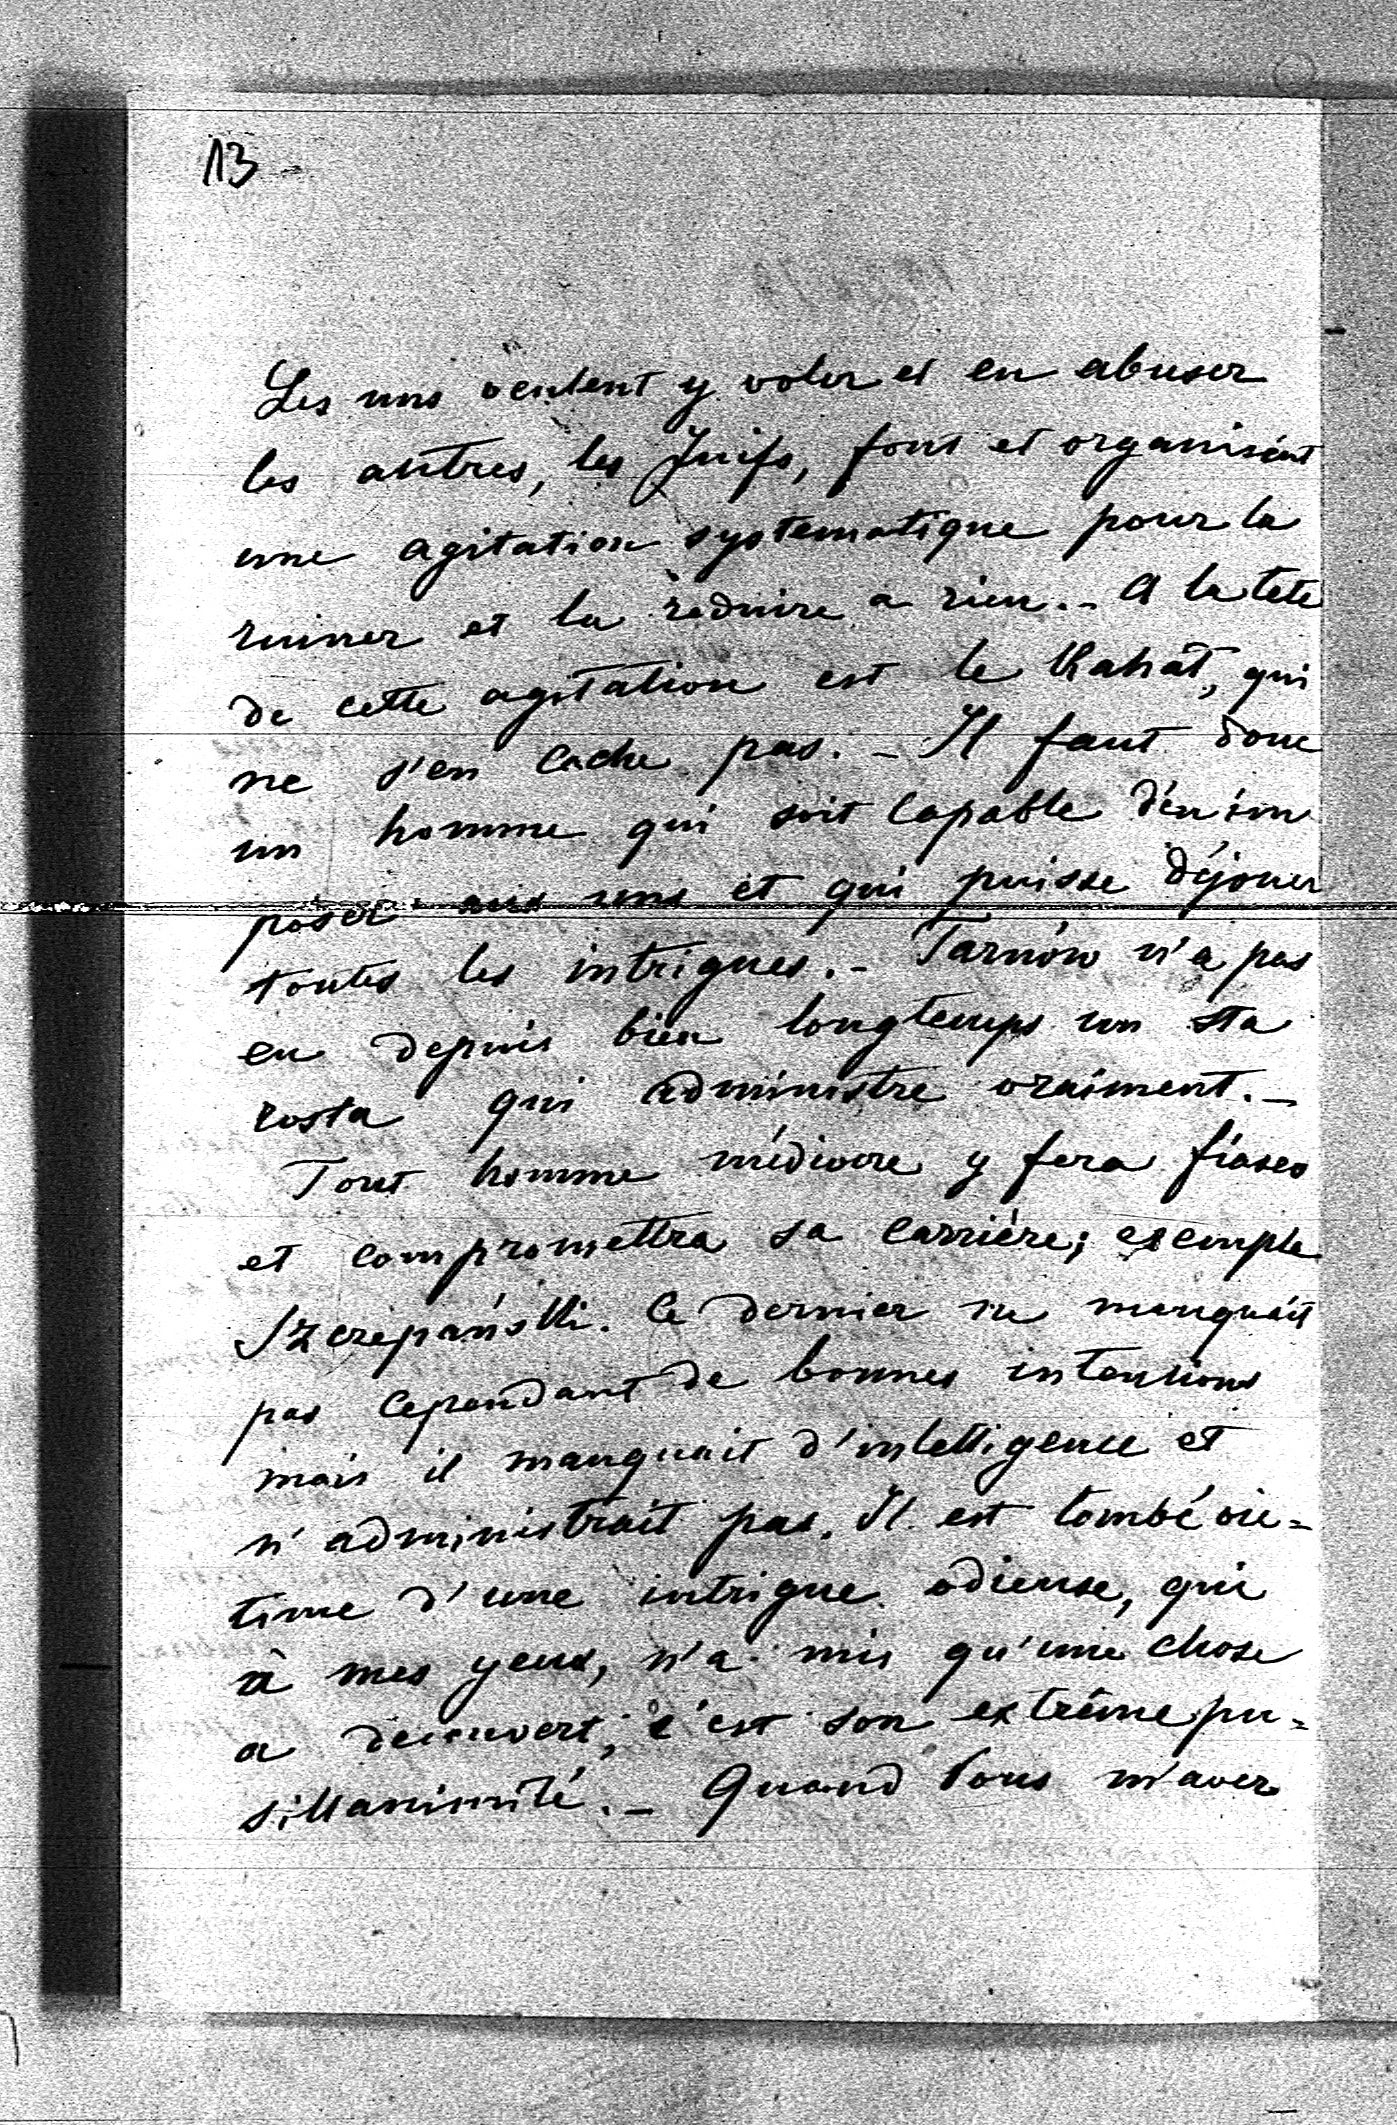 13
Les uns veulent y voler et en abuser
les autres, les Juifs, font et organisent
une agitation systematique pour la
ruiner et la réduire a rien. - A la tete
de cette agitation est le Kahat, qui
ne s'en cache pas. - Il faut donc
un homme qui soit capable d'en im
poser aux uns et qui puisse déjouer
toutes les intrigues. - Tarnów n'a pas
eu depuis bien longtemps un sta
rosta qui administre vraiment. -
Tout homme médiocre y fera fiasco
et compromettra sa carrière; exemple
Szczepański. Ce dernier ne manquait
pas cependant de bonnes intentions
mais il manquait d'intelligence et
n'administrait pas. Il est tombé vic=
time d'une intrigue odieuse, qui
à mes yeux, n'a mis qu'une chose
a decouvert; c'est son extrême pu=
sillanimité. - Quand Vous m'avez